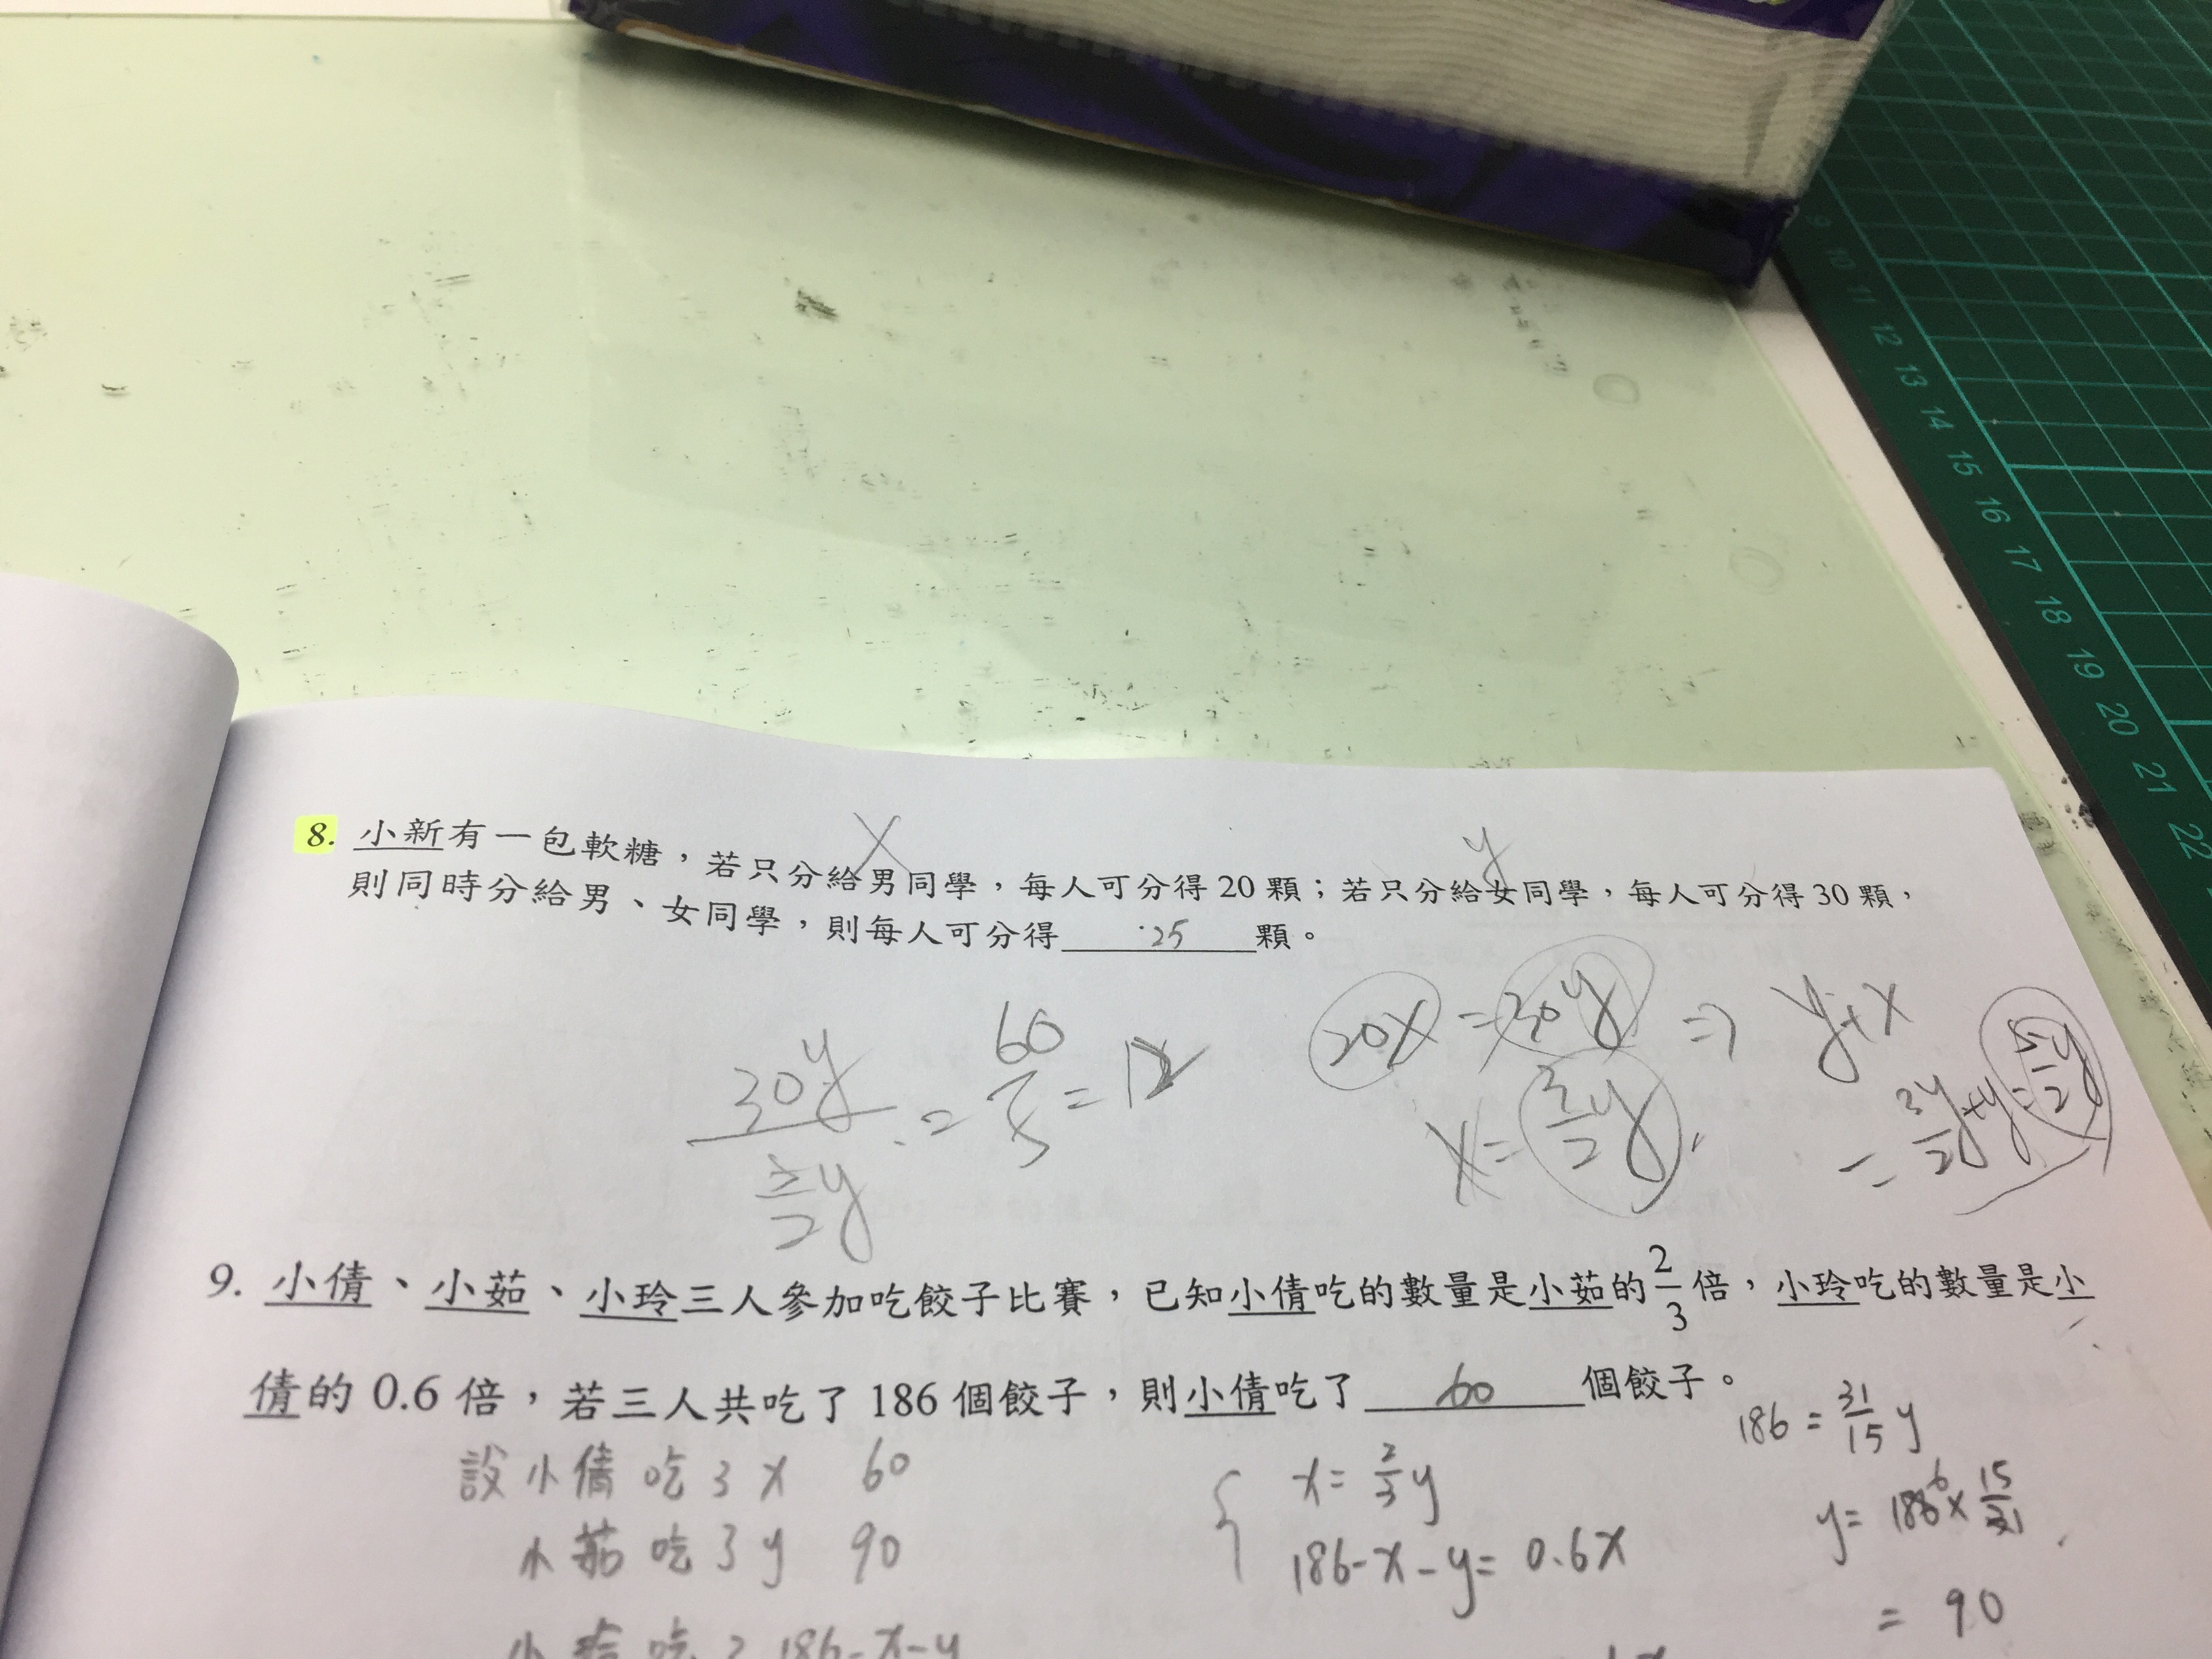 9
10
11
12
13
14
15
16
17
18
19
20
21
22
x
y
8. 小新有一包軟糖，若只分給男同學，每人可分得 20 顆；若只分給女同學，每人可分得 30 顆，
則同時分給男、女同學，則每人可分得 25 顆。
20x = 30y => y+x
x = 3/2 y,
= 3/2 y + y = 5/2 y
30y / 5/2 y = 60/5 = 12
9. 小倩、小茹、小玲三人參加吃餃子比賽，已知小倩吃的數量是小茹的 2/3 倍，小玲吃的數量是小
倩的 0.6 倍，若三人共吃了 186 個餃子，則小倩吃了 60 個餃子。
設小倩吃了 x 60
小茹吃了 y 90
小玲吃了 186-x-y
x = 2/3 y
186-x-y = 0.6x
186 = 31/15 y
y = 186 6 x 15/31
= 90